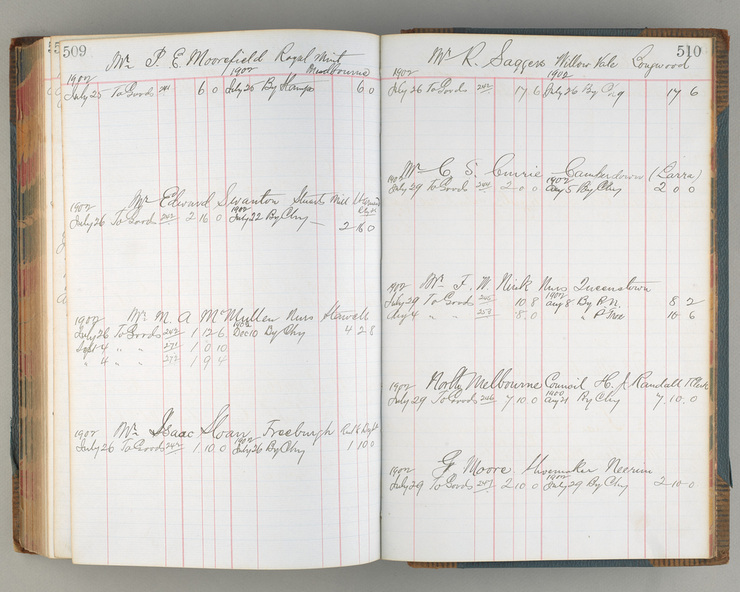 509
Mr P. E. Moorefield Royal Mint
Melbourne
1902 1902
July 25 To Goods 241 6 0 July 25 By Stamps 6 0
Mr Edward Swanton Stuart Mill
1902 1902
July 26 To Goods 242 2 16 0 July 22 By Chq 2 16 0
1902 Mr M. A. McMullen Nurs Stawell
1902
July 26 To Goods 242 1 12 6 Dec 10 By Chq 4 2 8
Sept 4 " " 271 1 0 10
" 4 " " 272 1 9 4
1902 Mr Isaac Sloan Freeburgh
1902
July 26 To Goods 1 10 0 July 26 By Chq 1 10 0
510
Mr R. Saggers Willow Vale Longwood
1902 1902
July 26 To Goods 242 17 6 July 26 By Chq 17 6
Mr C. S. Currie (Larra)
1902 1902
July 29 To Goods 2 0 0 Aug 5 By Chq 2 0 0
1902 Mr J. W. Nink Nurs Queenstown
1902
July 29 To Goods 10 8 Aug 8 By P.N. 8 2
Aug 4 " " 253 8 0 " P Tree 10 6
1902 North Melbourne Council H. J. Randall T Clerk
July 29 To Goods 246 7 10 0 Aug 21 By Chq 7 10 0
1902 G Moore Shoemaker Neerim
1902
July 29 To Goods 247 2 10 0 July 29 By Chq 2 10 0